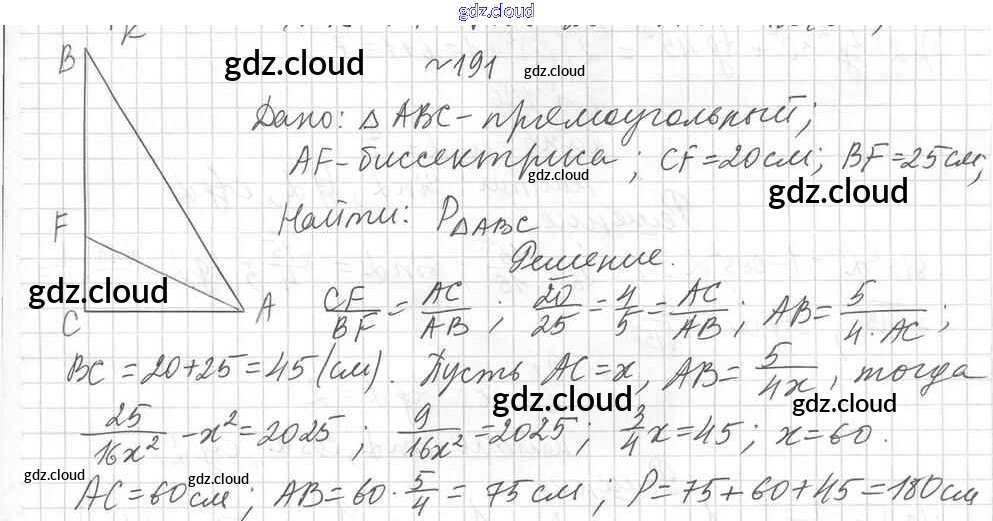 gdz.cloud
№191
gdz.cloud gdz.cloud
Дано: △ABC - прямоугольный;
AF - биссектриса; CF = 20 см; BF = 25 см;
gdz.cloud gdz.cloud
Найти: P△ABC
Решение.
B
F
C
A
gdz.cloud
CF/BF = AC/AB; 20/25 = 4/5 = AC/AB; AB = 5/(4·AC);
BC = 20+25 = 45 (см). Пусть AC = x, AB = 5/(4x), тогда
gdz.cloud gdz.cloud
25/(16x²) - x² = 2025; 9/(16x²) = 2025; 3/4 x = 45; x = 60.
gdz.cloud gdz.cloud
AC = 60 см; AB = 60 · 5/4 = 75 см; P = 75 + 60 + 45 = 180 см
gdz.cloud